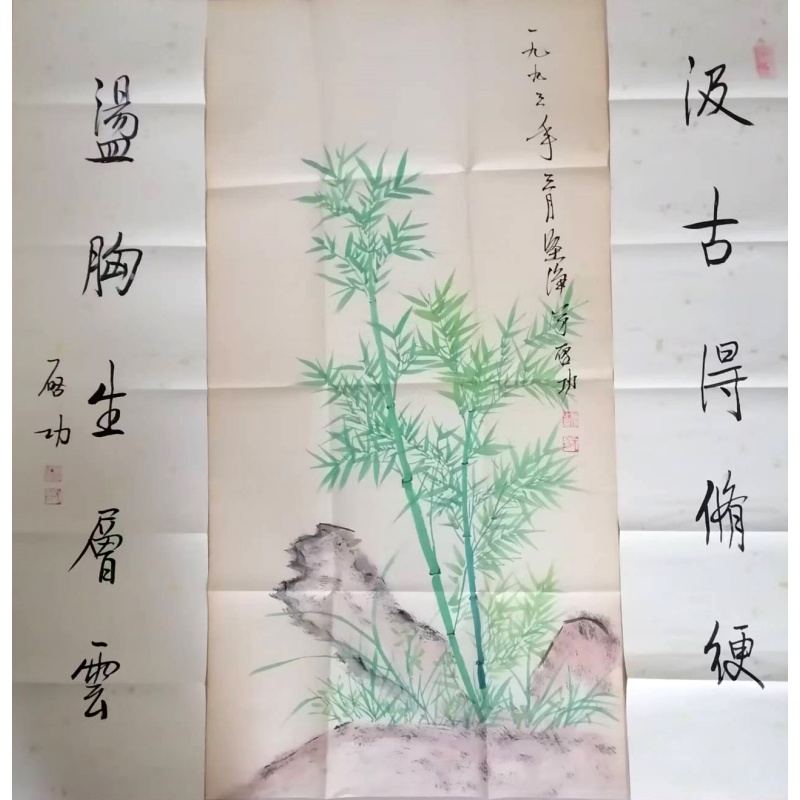 汲古得脩綆
一九九三年三月坚净翁启功
盪胸生層雲
启功